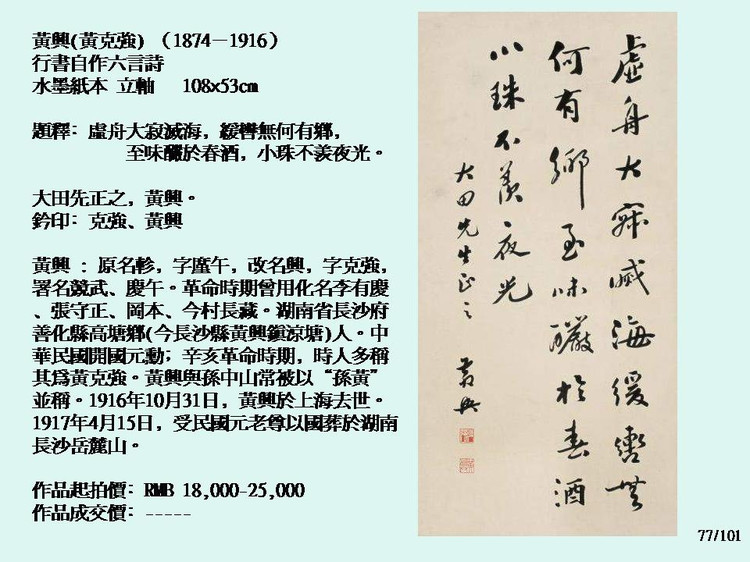 黃興(黃克強) （1874－1916）
行書自作六言詩
水墨紙本 立軸 108x53cm
題釋: 虛舟大寂滅海，緩轡無何有鄉，
至味釅於春酒，小珠不羨夜光。
大田先正之，黃興。
鈐印: 克強、黃興
黃興 : 原名軫，字廑午，改名興，字克強，
署名競武、慶午。革命時期曾用化名李有慶
、張守正、岡本、今村長藏。湖南省長沙府
善化縣高塘鄉(今長沙縣黃興鎮涼塘)人。中
華民國開國元勳; 辛亥革命時期，時人多稱
其爲黃克強。黃興與孫中山常被以“孫黃”
並稱。1916年10月31日，黃興於上海去世。
1917年4月15日，受民國元老尊以國葬於湖南
長沙岳麓山。
作品起拍價: RMB 18,000-25,000
作品成交價: -----
虛舟大寂滅海緩轡無
何有鄉至味釅於春酒
小珠不羨夜光
大田先生正之
黃興
77/101